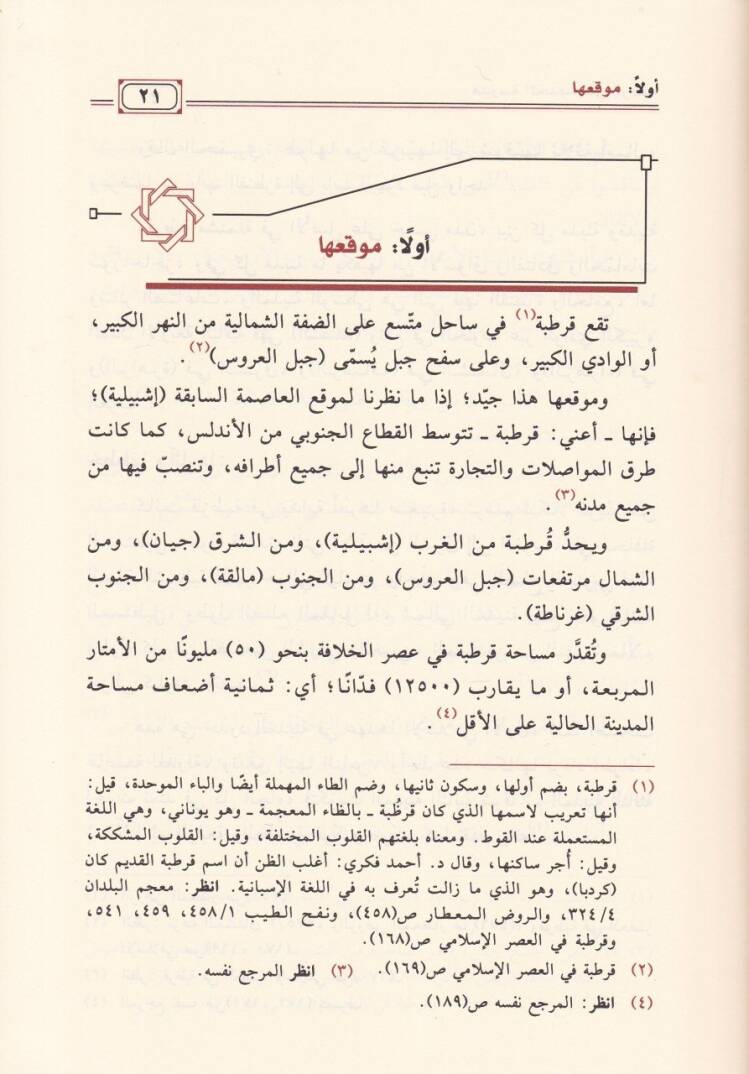 أولاً: موقعها
٢١
أولًا: موقعها
تقع قرطبة(١) في ساحل متّسع على الضفة الشمالية من النهر الكبير،
أو الوادي الكبير، وعلى سفح جبل يُسمّى (جبل العروس)(٢).
وموقعها هذا جيّد؛ إذا ما نظرنا لموقع العاصمة السابقة (إشبيلية)؛
فإنها ـ أعني: قرطبة ـ تتوسط القطاع الجنوبي من الأندلس، كما كانت
طرق المواصلات والتجارة تنبع منها إلى جميع أطرافه، وتنصبّ فيها من
جميع مدنه(٣).
ويحدُّ قُرطبة من الغرب (إشبيلية)، ومن الشرق (جيان)، ومن
الشمال مرتفعات (جبل العروس)، ومن الجنوب (مالقة)، ومن الجنوب
الشرقي (غرناطة).
وتُقدَّر مساحة قرطبة في عصر الخلافة بنحو (٥٠) مليونًا من الأمتار
المربعة، أو ما يقارب (١٢٥٠٠) فدّانًا؛ أي: ثمانية أضعاف مساحة
المدينة الحالية على الأقل(٤).
(١) قرطبة، بضم أولها، وسكون ثانيها، وضم الطاء المهملة أيضًا والباء الموحدة، قيل:
أنها تعريب لاسمها الذي كان قرظُبة ـ بالظاء المعجمة ـ وهو يوناني، وهي اللغة
المستعملة عند القوط. ومعناه بلغتهم القلوب المختلفة، وقيل: القلوب المشككة،
وقيل: أُجر ساكنها، وقال د. أحمد فكري: أغلب الظن أن اسم قرطبة القديم كان
(كردبا)، وهو الذي ما زالت تُعرف به في اللغة الإسبانية. انظر: معجم البلدان
٣٢٤/٤، والروض المعطار ص(٤٥٨)، ونفح الطيب ٤٥٨/١، ٤٥٩، ٥٤١،
وقرطبة في العصر الإسلامي ص(١٦٨).
(٢) قرطبة في العصر الإسلامي ص(١٦٩). (٣) انظر المرجع نفسه.
(٤) انظر: المرجع نفسه ص(١٨٩).